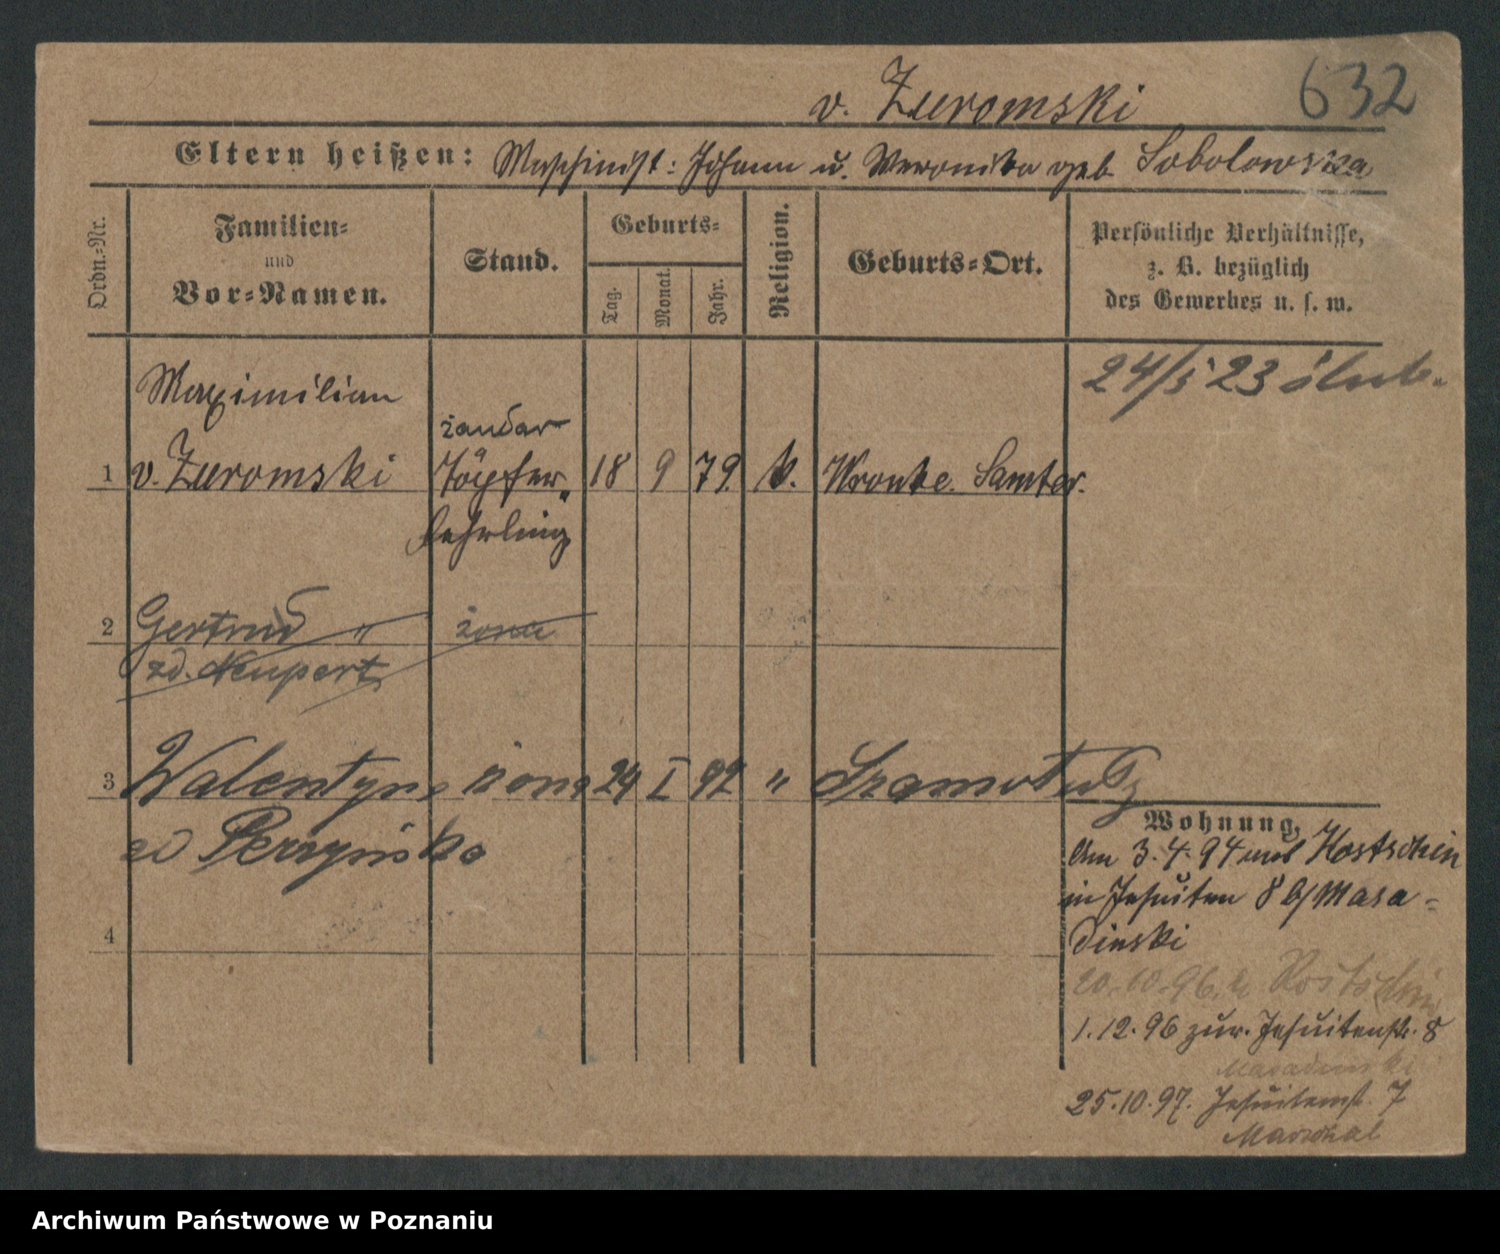 632
v. Zuromski
Eltern heißen: Maschinist: Johann u. Veronika geb. Sobolowska
Ordn.-Nr.
Familien-
und
Vor-Namen.
Stand.
Geburts-
Tag.
Monat.
Jahr.
Religion.
Geburts-Ort.
Persönliche Verhältnisse,
z. B. bezüglich
des Gewerbes u. s. w.
24/5 23 ślub.
Maximilian
żandar
1 v. Zuromski Töpfer- 18 9 79. k. Wronke. Samter.
Lehrling
2 Gertrud " żona
zd. Neupert
3 Walentyna żona 24 I 92 " Szamotuły
zd Perzyńska
Wohnung.
Am 3.4.94 aus Kostschin
in Jesuiten 8 b/ Masa-
dinski
4
20.10.96. n Kostschin
1.12.96 zur. Jesuitenstr. 8
Masadinski
25.10.97. Jesuitenst. 7
Marschal
Archiwum Państwowe w Poznaniu